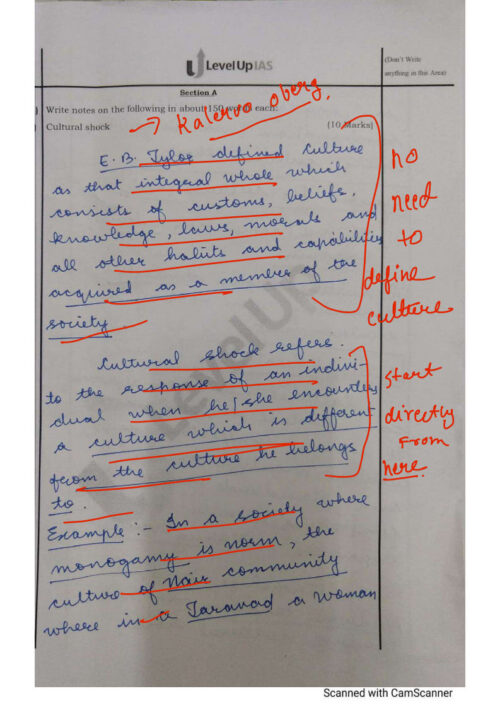 Level Up IAS
(Don't Write
anything in this Area)
Section A
Write notes on the following in about 150 words each:
Cultural shock → Kalervo Oberg. (10 Marks)
E. B. Tylor defined culture
as that integral whole which
consists of customs, beliefs,
knowledge, laws, morals and
all other habits and capabilities
acquired as a member of the
society.
no
need
to
define
culture
Cultural shock refers
to the response of an indivi-
dual when he/she encounters
a culture which is different
from the culture he belongs
to.
start
directly
from
here.
Example :- In a society where
monogamy is norm, the
culture of Nair community
where in a Taravad a woman
Level Up
Scanned with CamScanner